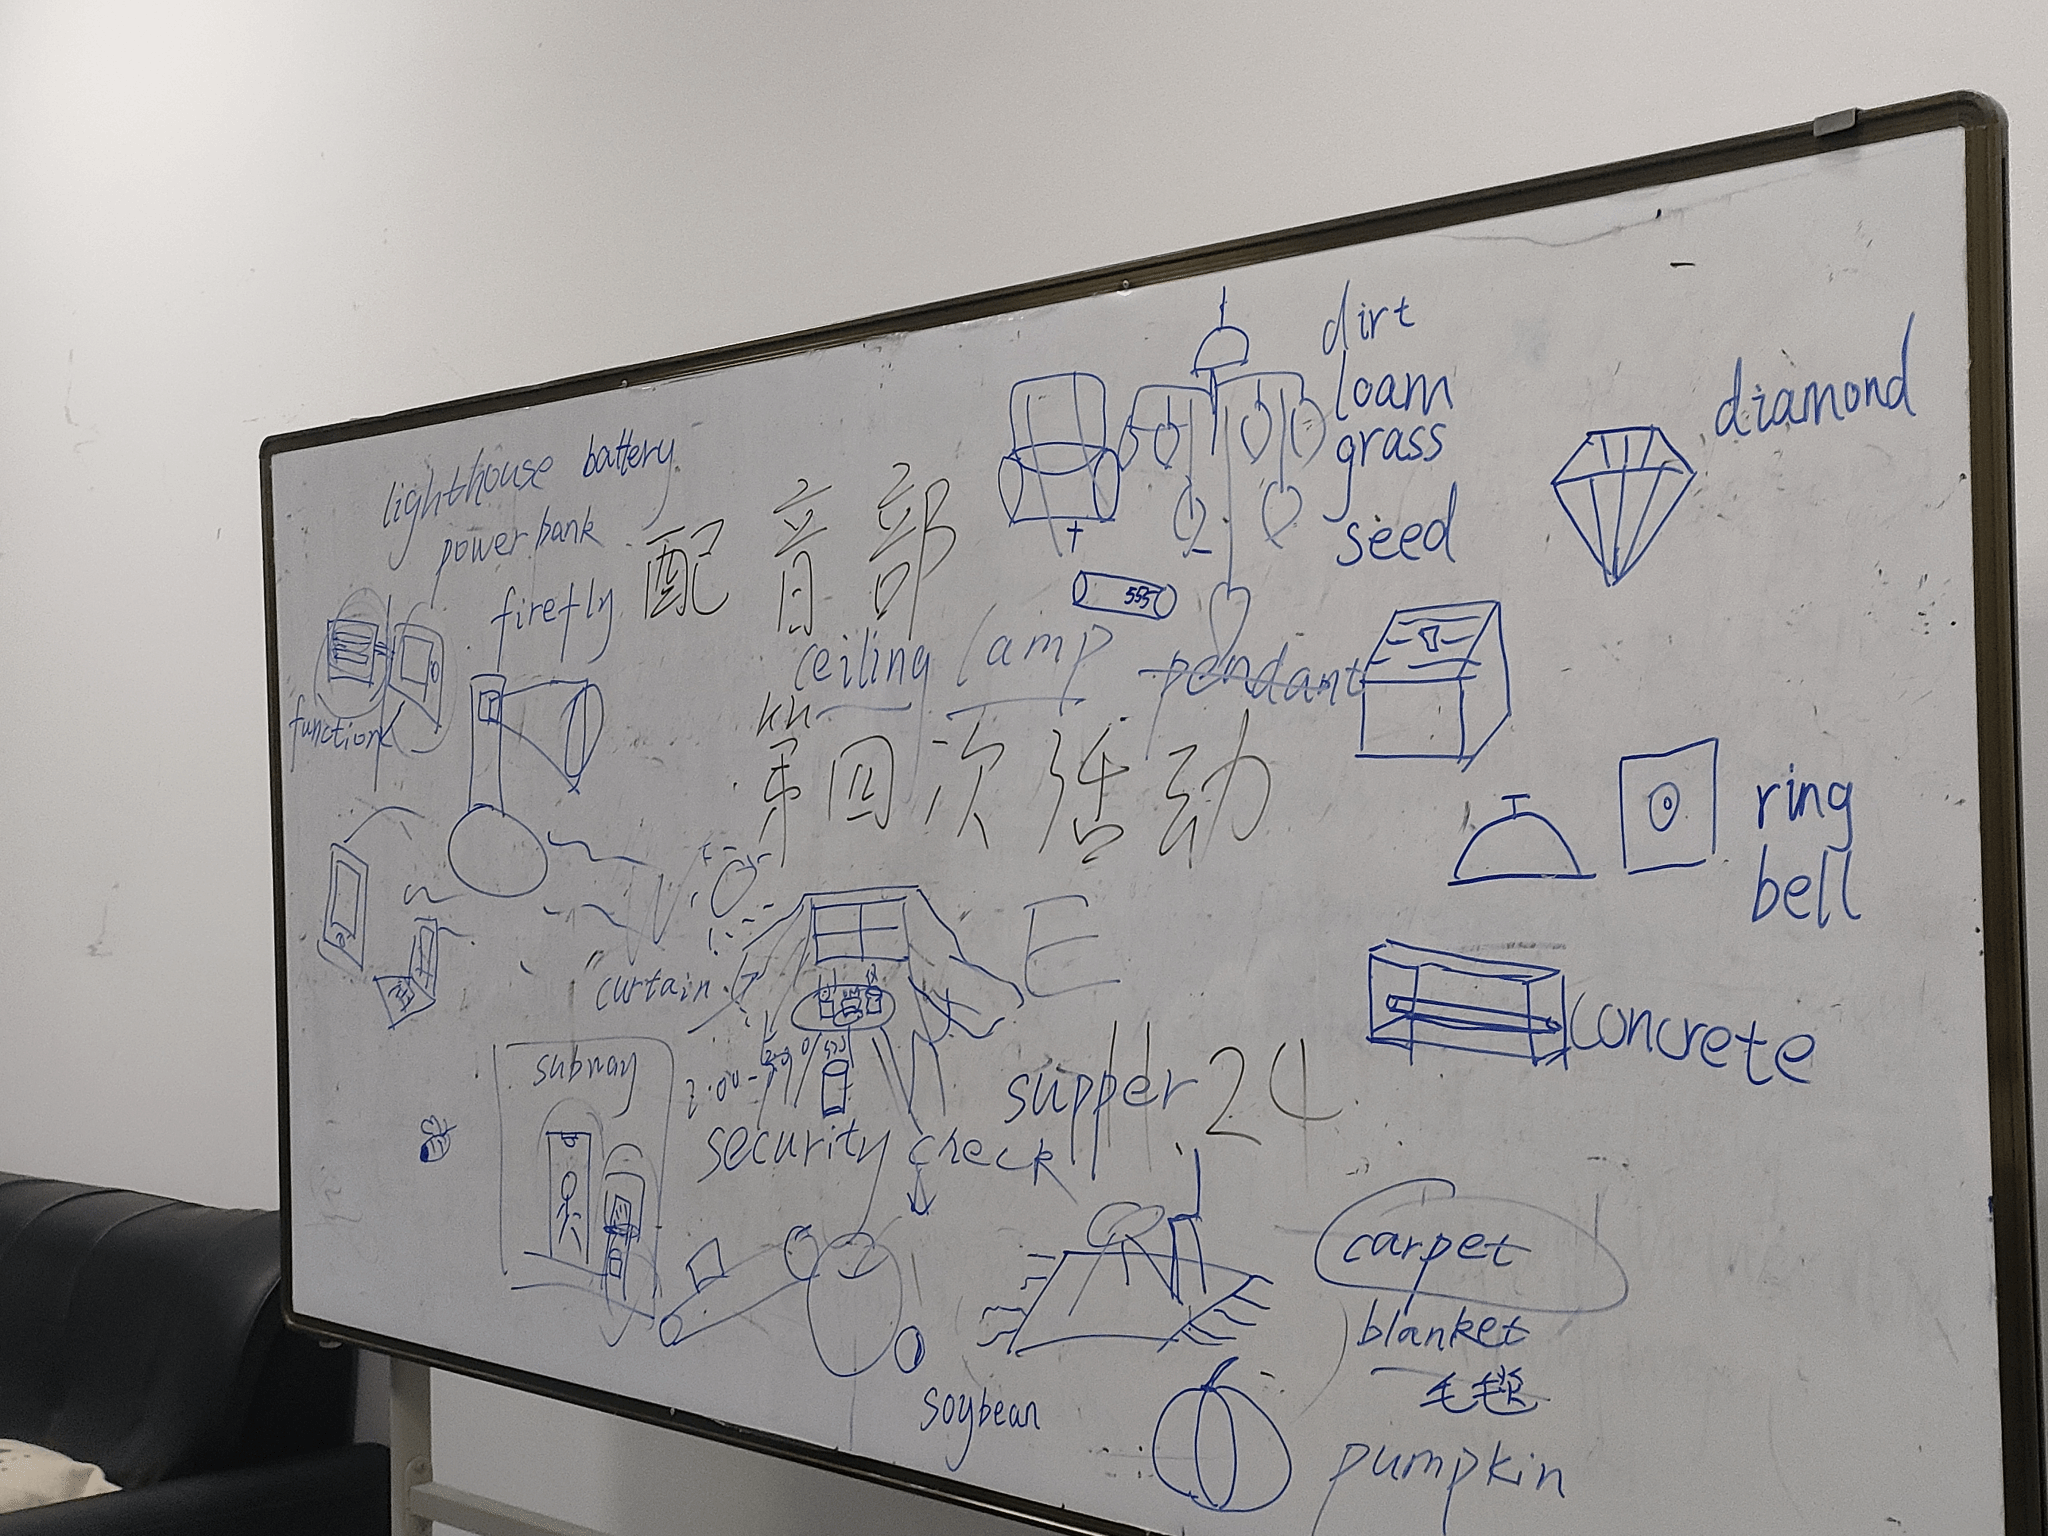 lighthouse battery
power bank
firefly
function
配音部
ceiling lamp
pendant
第四次活动
dirt
loam
grass
seed
diamond
ring
bell
concrete
curtain
E
subway
security check
supper 24
carpet
blanket
毛毯
pumpkin
soybean